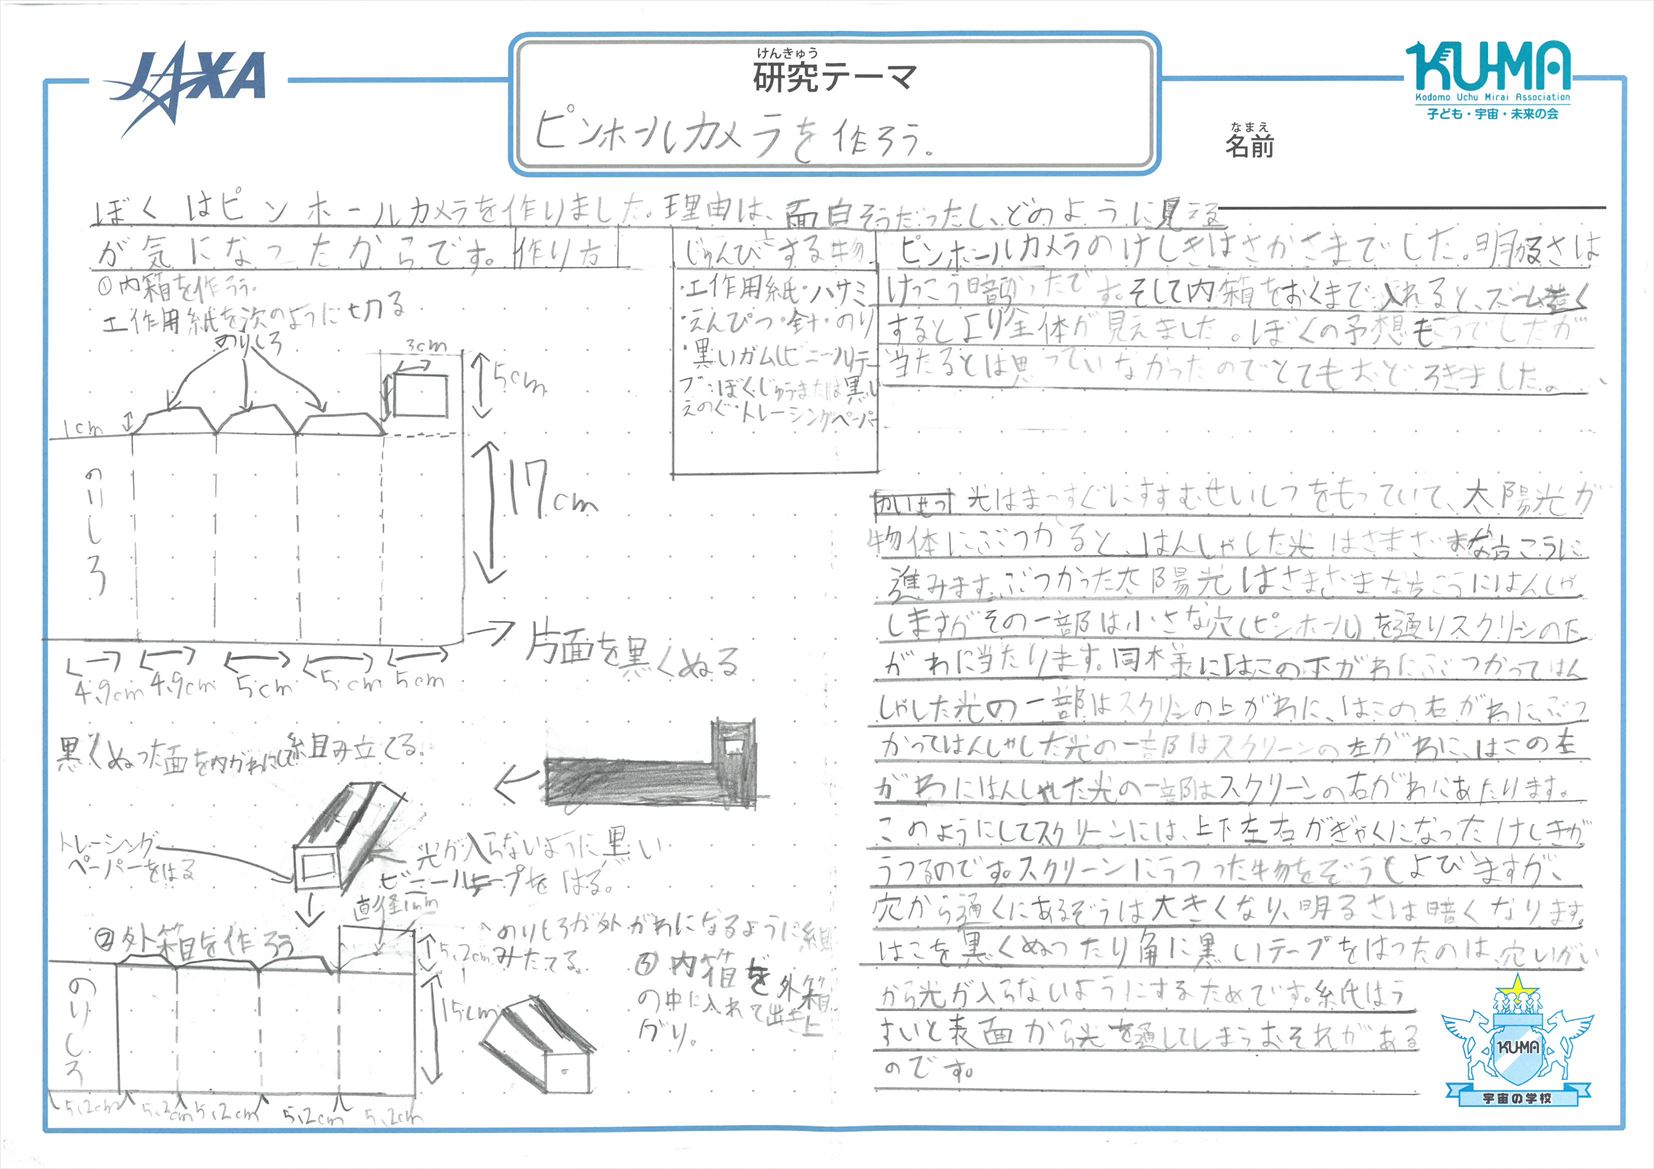 JAXA
けんきゅう
研究テーマ
ピンホールカメラを作ろう。
KU-MA
Kodomo Uchu Mirai Association
子ども・宇宙・未来の会
なまえ
名前
ぼくはピンホールカメラを作りました。理由は、面白そうだったし、どのように見える
が気になったからです。
作り方
①内箱を作ろう。
工作用紙を次のように切る
のりしろ
3cm
5cm
1cm
のりしろ
17cm
4.9cm 4.9cm 5cm 5cm 5cm
片面を黒くぬる
黒くぬった面を内がわにして組み立てる。
トレーシング
ペーパーをはる
光が入らないように黒い
ビニールテープをはる。
②外箱を作ろう
直径1mm
のりしろ
5.2cm
15cm
5.2cm 5.2cm 5.2cm 5.2cm 5.2cm
のりしろが外がわになるように組
みたてる。
③内箱を外箱
の中に入れて出き上
がり。
じゅんびする物
・工作用紙・ハサミ
・えんぴつ・針・のり
・黒いガム(ビニール)テー
プ・ぼくじゅうまたは黒い
えのぐ・トレーシングペーパー
ピンホールカメラのけしきはさかさまでした。明るさは
けっこう暗かったです。そして内箱をおくまで入れると、ズーム
すると より全体が見えました。ぼくの予想もそうでしたが
当たるとは思っていなかったのでとてもおどろきました。
かいせつ 光はまっすぐにすすむせいしつをもっていて、太陽光が
物体にぶつかると、はんしゃした光はさまざまな方こうに
進みます。ぶつかった太陽光はさまざまな方こうにはんしゃ
しますがその一部は小さな穴(ピンホール)を通りスクリーンの下
がわに当たります。同様にはこの下がわにぶつかってはん
しゃした光の一部はスクリーンの上がわに、はこの右がわにぶつ
かってはんしゃした光の一部はスクリーンの左がわに、はこの左
がわにはんしゃした光の一部はスクリーンの右がわにあたります。
このようにしてスクリーンには、上下左右がぎゃくになったけしきが
うつるのです。スクリーンにうつった物をぞうとよびますが、
穴から遠くにあるぞうは大きくなり、明るさは暗くなります。
はこを黒くぬったり角に黒いテープをはったのは、穴いがい
から光が入らないようにするためです。紙はう
すいと表面から光を通してしまうおそれがある
のです。
KU-MA
宇宙の学校